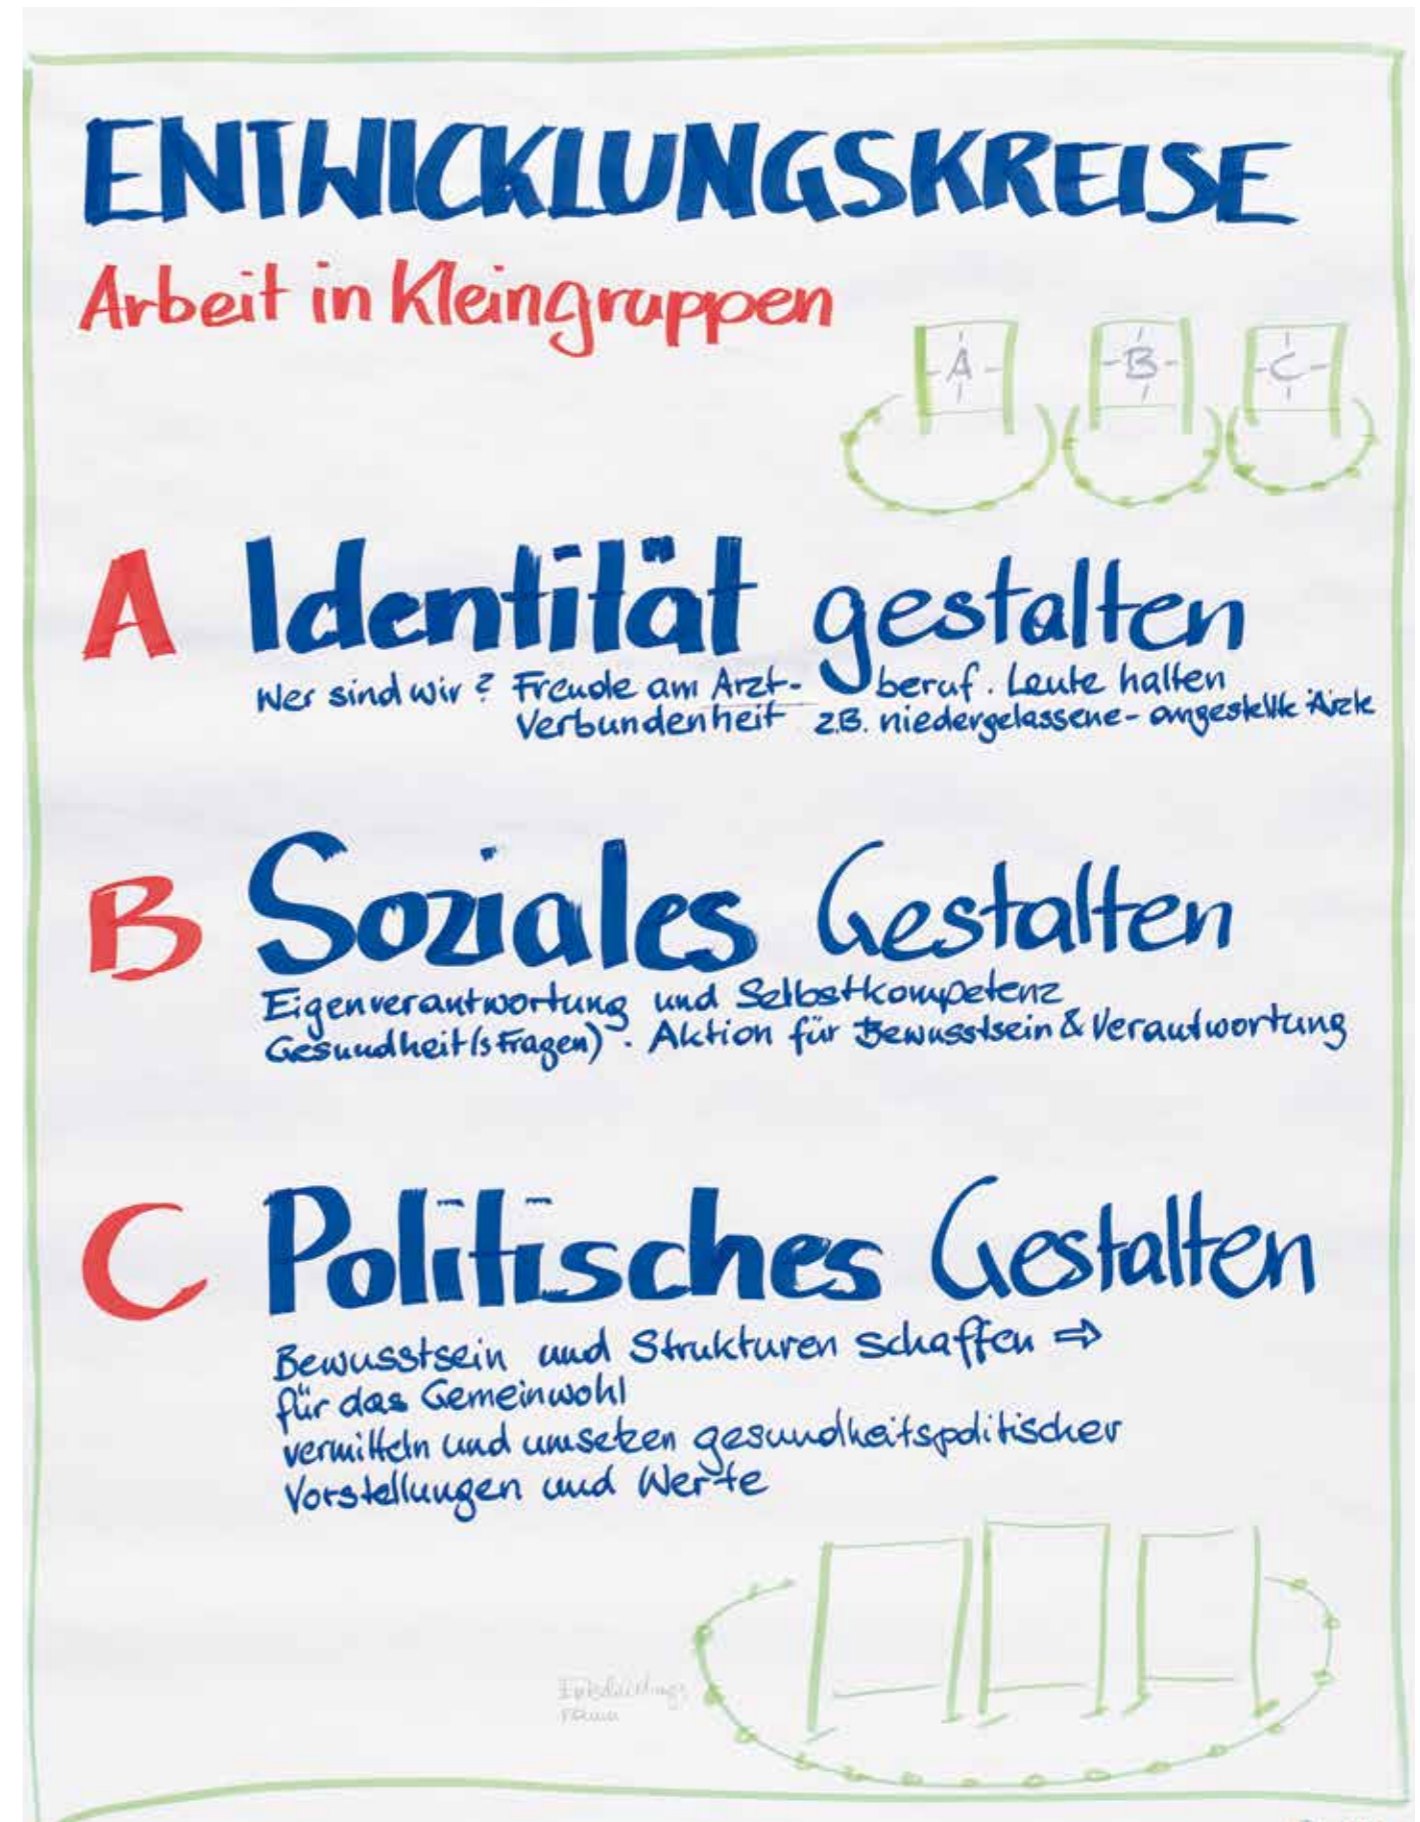 ENTWICKLUNGSKREISE
Arbeit in Kleingruppen
A B C
A Identität gestalten
Wer sind wir? Freude am Arzt-beruf. Leute halten
Verbundenheit z.B. niedergelassene- angestellte Ärzte
B Soziales Gestalten
Eigenverantwortung und Selbstkompetenz
Gesundheit(sfragen). Aktion für Bewusstsein & Verantwortung
C Politisches Gestalten
Bewusstsein und Strukturen schaffen ⇒
für das Gemeinwohl
vermitteln und umsetzen gesundheitspolitischer
Vorstellungen und Werte